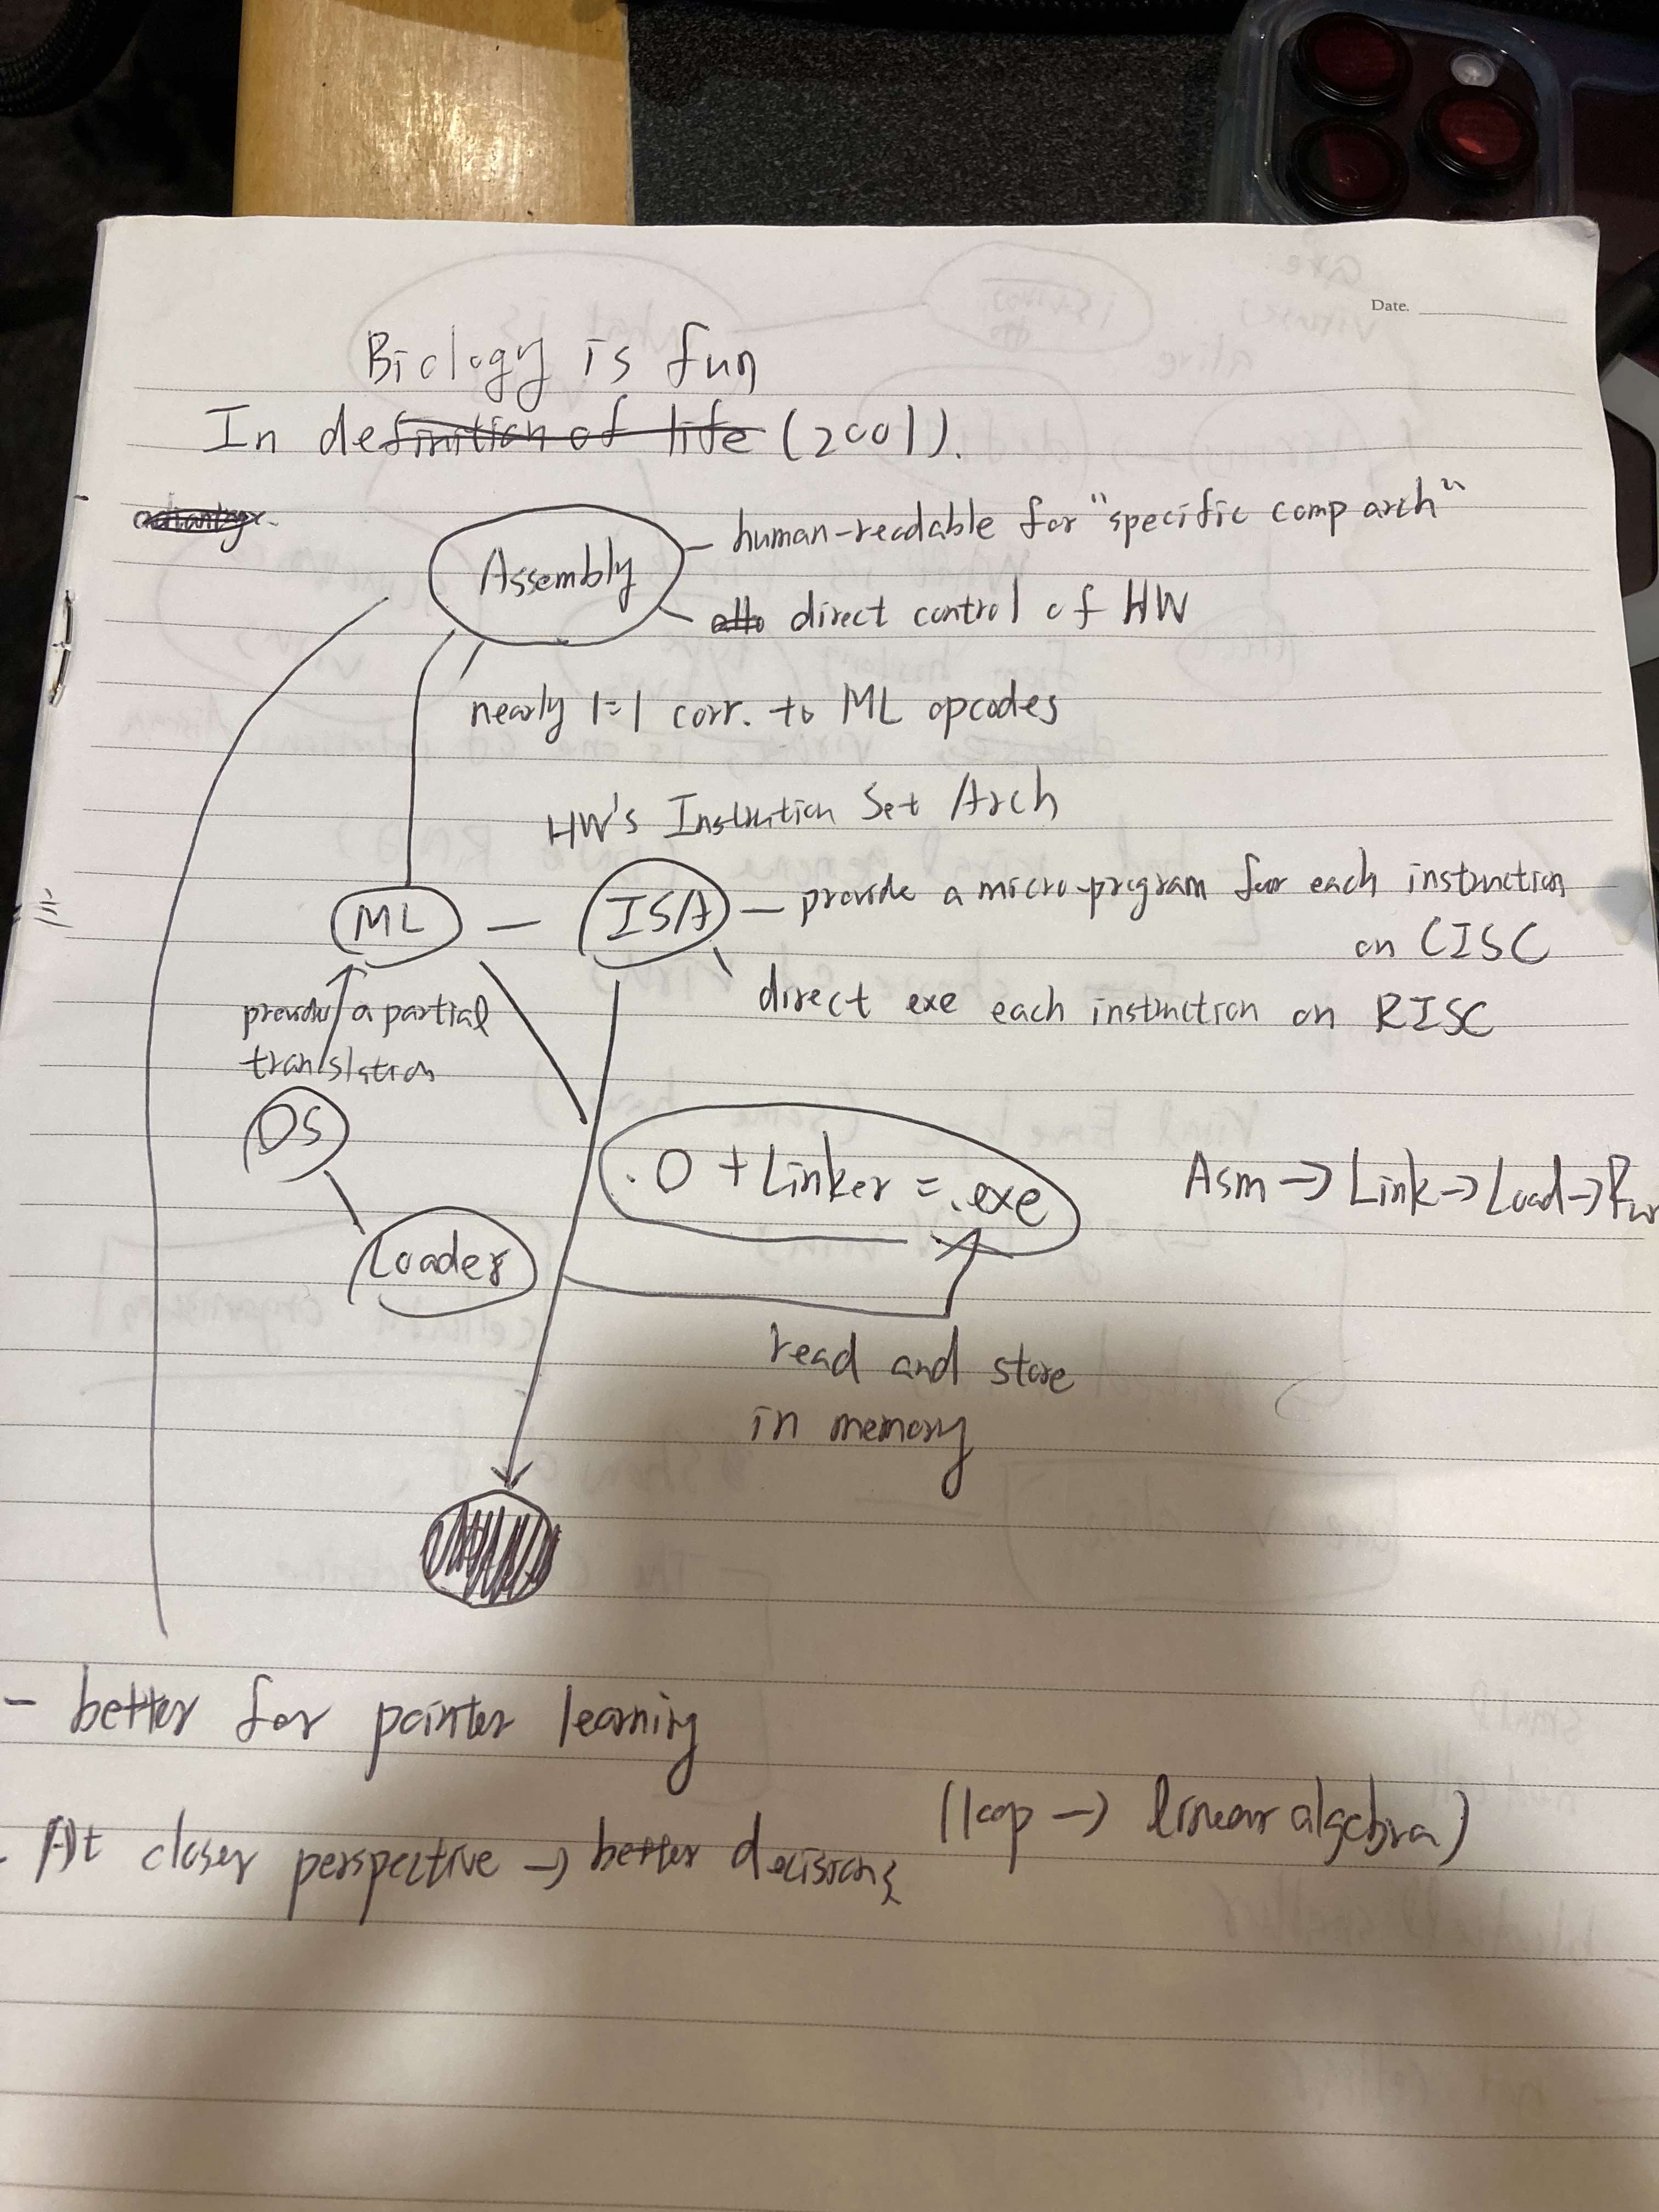 Date.
Biology is fun
In definition of life (2001).
Assembly
human-readable for "specific comp arch"
direct control of HW
nearly 1=1 corr. to ML opcodes
HW's Instruction Set Arch
ML — ISA — provide a micro-program for each instruction
on CISC
direct exe each instruction on RISC
provides a partial
translation
OS
.O + Linker = .exe
Asm → Link → Load → Run
Loader
read and store
in memory
- better for pointer learning
(loop → linear algebra)
- At closer perspective → better decisions